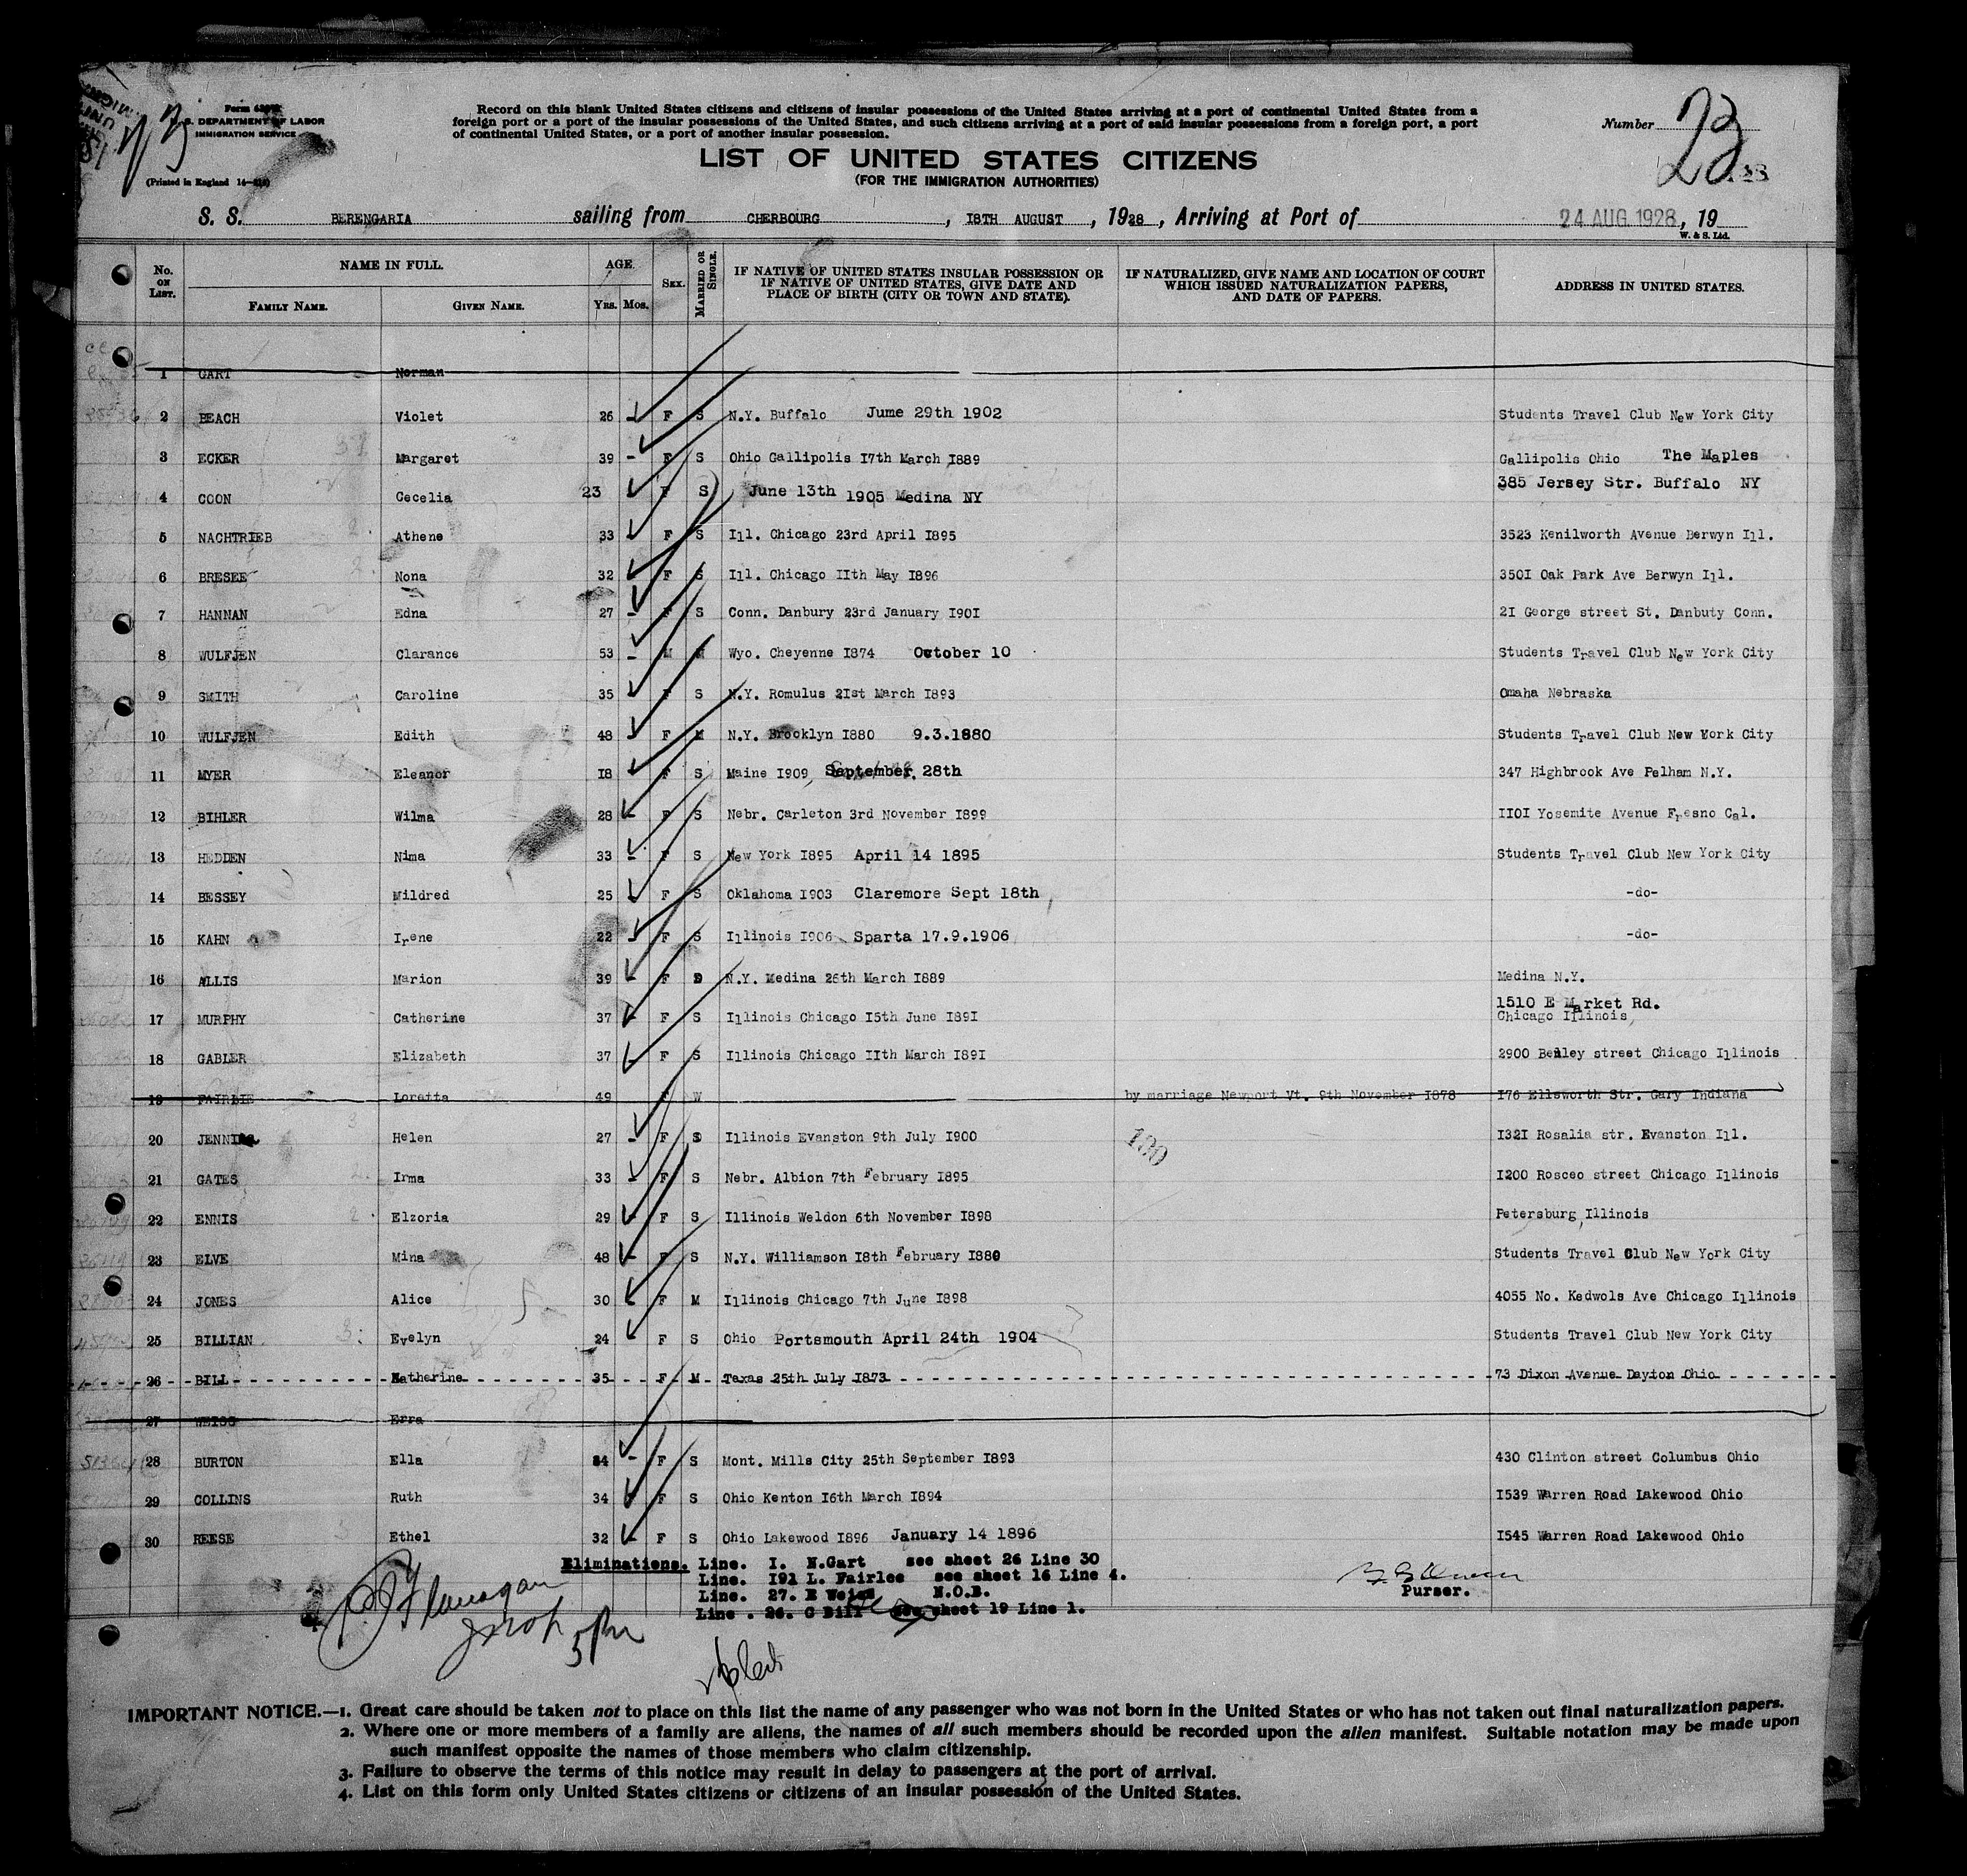 Form
U.S. DEPARTMENT OF LABOR
IMMIGRATION SERVICE
(Printed in England
Record on this blank United States citizens and citizens of insular possessions of the United States arriving at a port of continental United States from a
foreign port or a port of the insular possessions of the United States, and such citizens arriving at a port of said insular possessions from a foreign port, a port
of continental United States, or a port of another insular possession.
Number 23
LIST OF UNITED STATES CITIZENS
(FOR THE IMMIGRATION AUTHORITIES)
S. S. BERENGARIA sailing from CHERBOURG, I8TH AUGUST, 1928, Arriving at Port of 24 AUG 1928, 19
W. & S. Ltd.
No. ON LIST. NAME IN FULL. FAMILY NAME. GIVEN NAME. AGE. YRS. MOS. SEX. MARRIED OR SINGLE. IF NATIVE OF UNITED STATES INSULAR POSSESSION OR IF NATIVE OF UNITED STATES, GIVE DATE AND PLACE OF BIRTH (CITY OR TOWN AND STATE). IF NATURALIZED, GIVE NAME AND LOCATION OF COURT WHICH ISSUED NATURALIZATION PAPERS, AND DATE OF PAPERS. ADDRESS IN UNITED STATES.
1 GART Norman
2 BEACH Violet 26 - F S N.Y. Buffalo Jume 29th 1902 Students Travel Club New York City
3 ECKER Margaret 39 - F S Ohio Gallipolis I7th March I889 Gallipolis Ohio The Maples
4 COON Cecelia 23 F S June 13th 1905 Medina NY 385 Jersey Str. Buffalo NY
5 NACHTRIEB Athene 33 F S Ill. Chicago 23rd April I895 3523 Kenilworth Avenue Berwyn Ill.
6 BRESEE Nona 32 F S Ill. Chicago IIth May I896 350I Oak Park Ave Berwyn Ill.
7 HANNAN Edna 27 - F S Conn. Danbury 23rd January I90I 2I George street St. Danbuty Conn.
8 WULFJEN Clarance 53 - M M Wyo. Cheyenne I874 October 10 Students Travel Club New York City
9 SMITH Caroline 35 F S N.Y. Romulus 2Ist March I893 Omaha Nebraska
10 WULFJEN Edith 48 F M N.Y. Brooklyn I880 9.3.1880 Students Travel Club New York City
11 MYER Eleanor I8 F S Maine I909, September 28th 347 Highbrook Ave Pelham N.Y.
12 BIHLER Wilma 28 F S Nebr. Carleton 3rd November I899 II0I Yosemite Avenue Fresno Cal.
13 HEDDEN Nima 33 - F S New York I895 April 14 1895 Students Travel Club New York City
14 BESSEY Mildred 25 F S Oklahoma I903 Claremore Sept 18th -do-
15 KAHN Irene 22 - F S Illinois I906 Sparta 17.9.1906 -do-
16 ALLIS Marion 39 - F D N.Y. Medina 26th March I889 Medina N.Y.
1510 E Market Rd.
17 MURPHY Catherine 37 F S Illinois Chicago I5th June I89I Chicago Illinois
18 GABLER Elizabeth 37 - F S Illinois Chicago IIth March I89I 2900 street Chicago Illinois
19 Loretta 49 F W by marriage Newport Vt. 9th November I878 I76 Ellsworth Str. Gary Indiana
20 Helen 27 - F Illinois Evanston 9th July I900 I32I Rosalia str. Evanston Ill.
100
21 GATES Irma 33 - F S Nebr. Albion 7th February I895 I200 Rosceo street Chicago Illinois
22 ENNIS Elzoria 29 F S Illinois Weldon 6th November I898 Petersburg Illinois
23 ELVE Mina 48 - F S N.Y. Williamson I8th February I880 Students Travel Club New York City
24 JONES Alice 30 F M Illinois Chicago 7th June I898 4055 No. Kedwols Ave Chicago Illinois
25 BILLIAN Evelyn 24 F S Ohio Portsmouth April 24th 1904 Students Travel Club New York City
26 BILL Katherine 35 F M Texas 25th July I873 73 Dixon Avenue Dayton Ohio
27 WEISS Erra
28 BURTON Ella 34 - F S Mont. Mills City 25th September I893 430 Clinton street Columbus Ohio
29 COLLINS Ruth 34 F S Ohio Kenton I6th March I894 I539 Warren Road Lakewood Ohio
30 REESE Ethel 32 F S Ohio Lakewood I896 January 14 1896 I545 Warren Road Lakewood Ohio
Eliminations. Line. I. N.Gart see sheet 26 Line 30
Line. I9 L. Fairlee see sheet 16 Line 4.
Line. 27. E Weiss N.O.B.
Line . 26. C Bill see sheet 19 Line 1.
Purser.
IMPORTANT NOTICE.—1. Great care should be taken not to place on this list the name of any passenger who was not born in the United States or who has not taken out final naturalization papers.
2. Where one or more members of a family are aliens, the names of all such members should be recorded upon the alien manifest. Suitable notation may be made upon
such manifest opposite the names of those members who claim citizenship.
3. Failure to observe the terms of this notice may result in delay to passengers at the port of arrival.
4. List on this form only United States citizens or citizens of an insular possession of the United States.